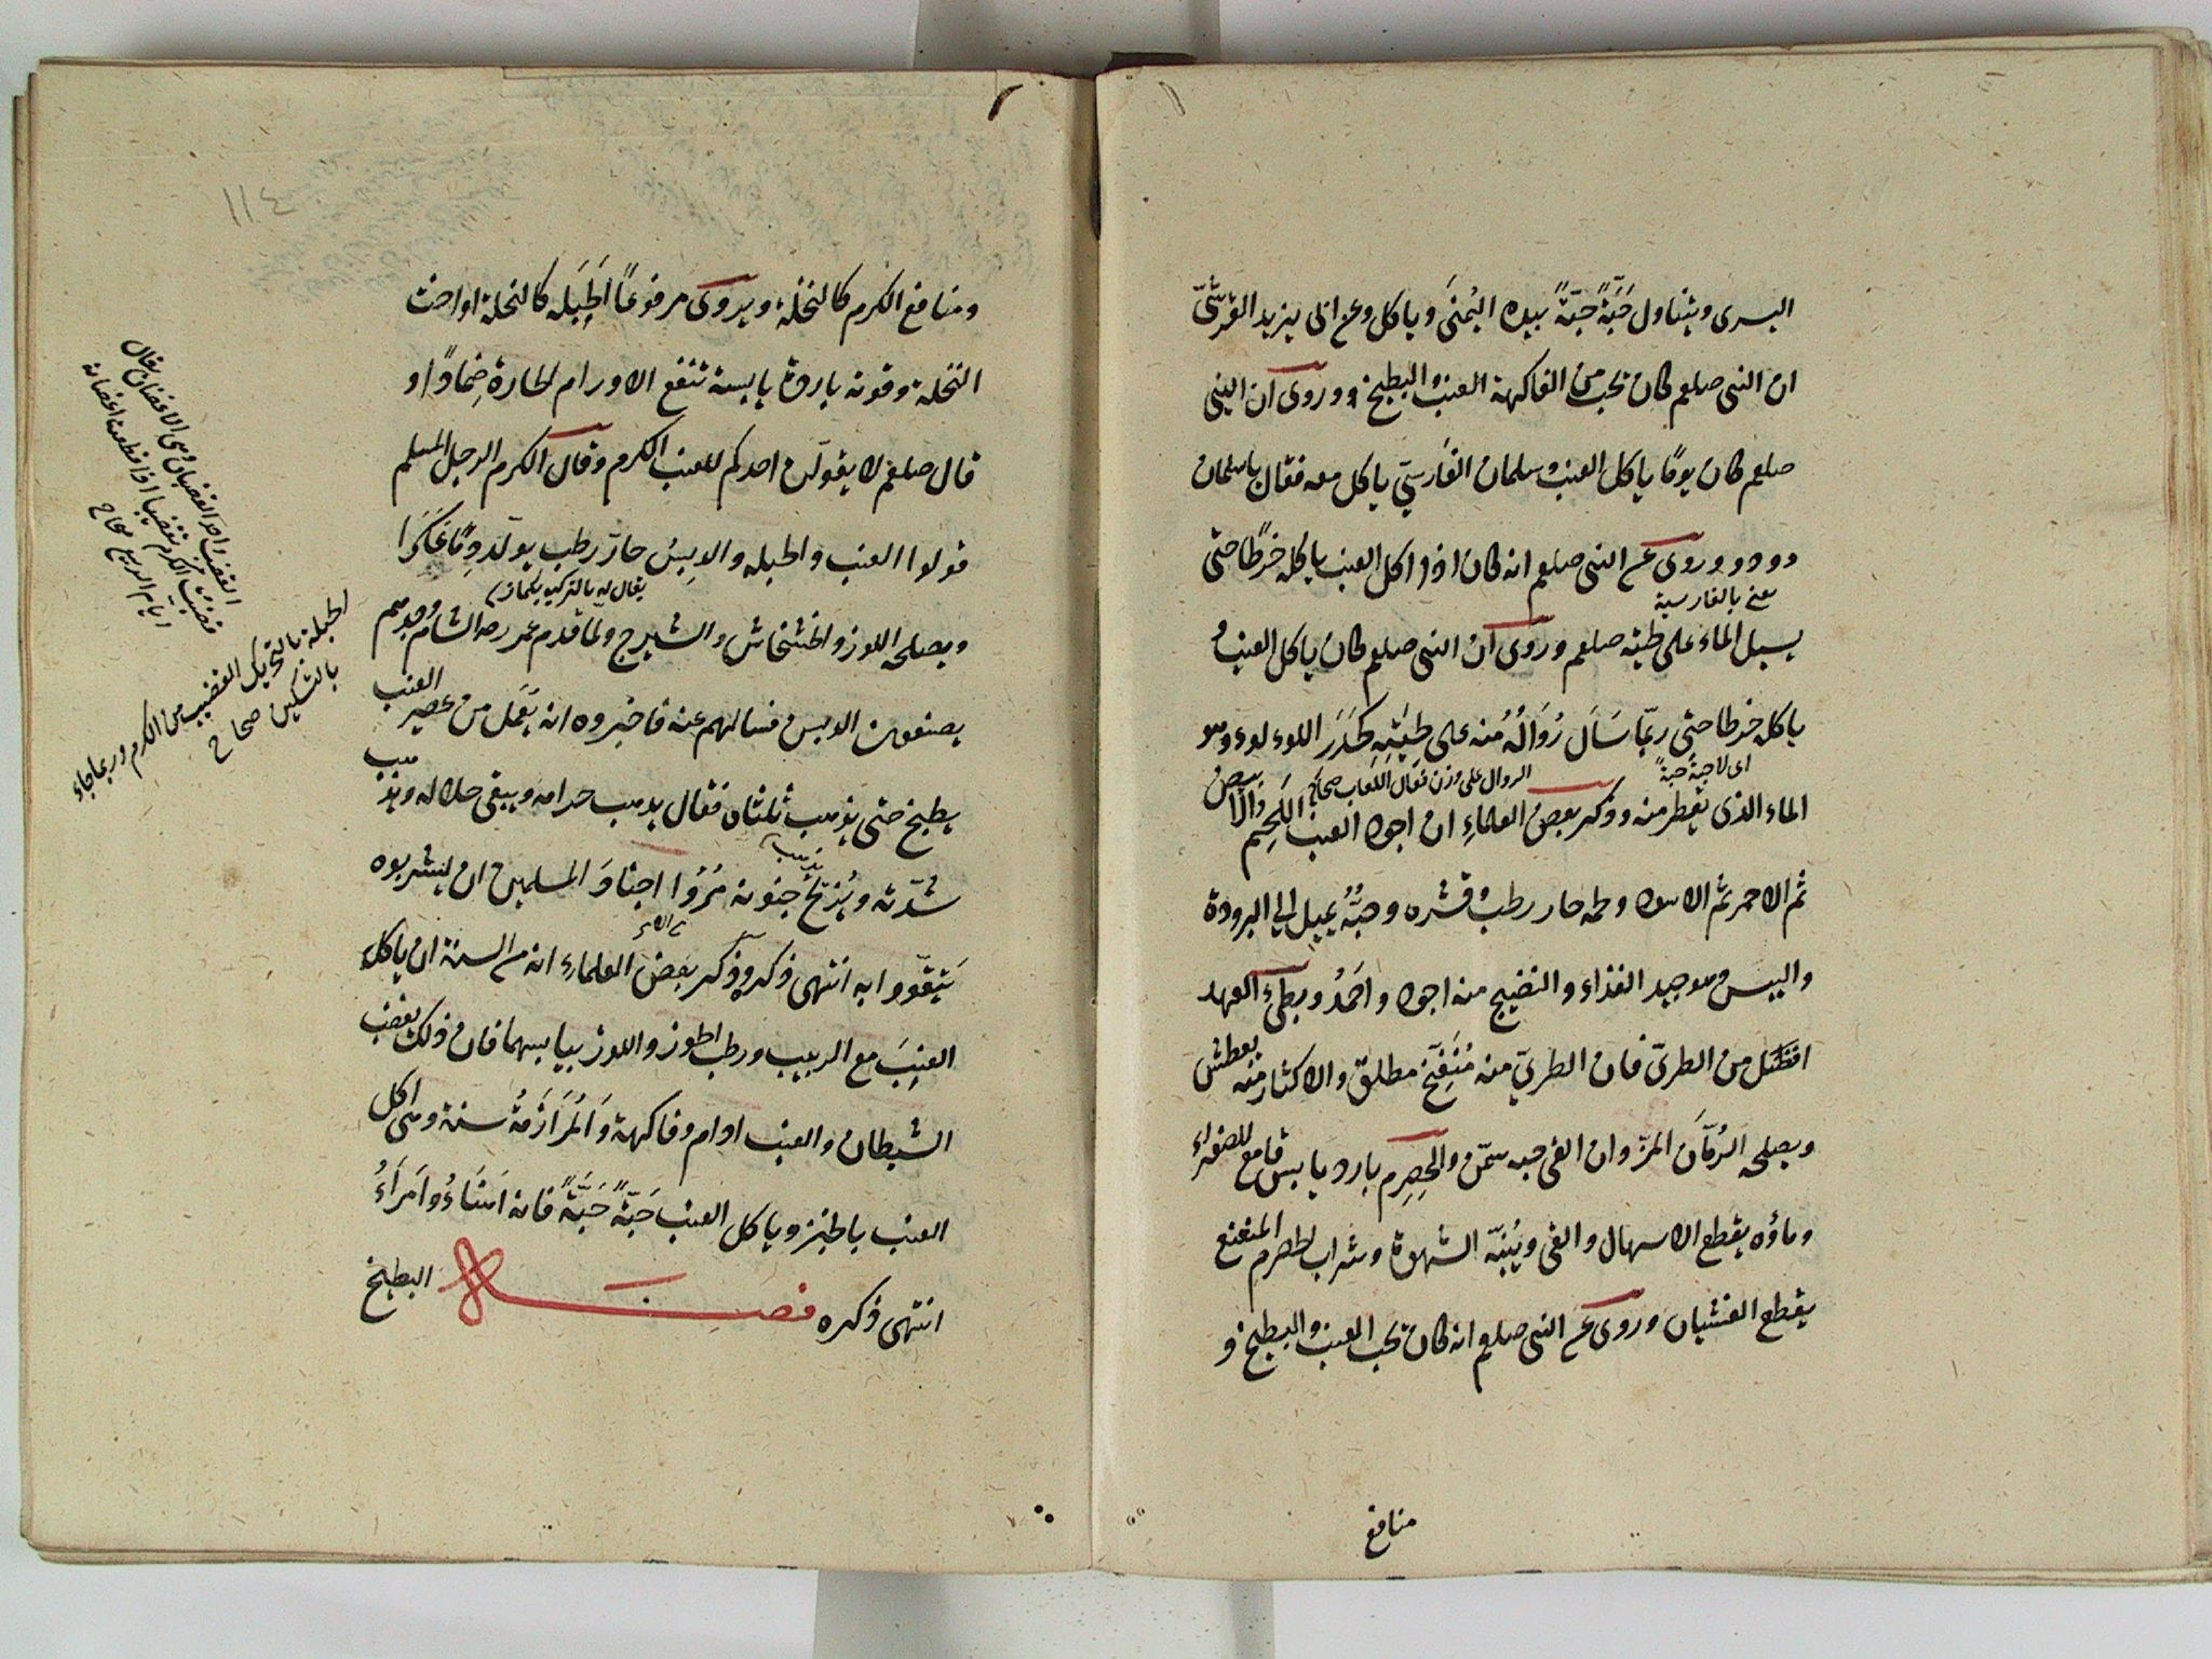 اليسرى ويتناول حَبَّةً حَبَّةً بيده اليُمنَى وياكل وعن ابى يزيد القرشىّ
ان النبى صلعم كان يحب من الفاكهة العنب والبطيخ وروى ان النبى
صلعم كان يومًا ياكل العنب وسلمان الفارسىّ ياكل معه فقال ياسلمان
دو دو وروى عن النبى صلعم انه كان اذا اكل العنب ياكله خرطًا حتى
يعنى بالفارسية
يسيل الماء على لحيته صلعم وروى ان النبى صلعم كان ياكل العنب و
ياكله خرطا حتى ربّما سَالَ رُوَالُهُ منه على لحيته كحَدَر اللوءلوء وهو
اى لاحبةً حبةً
الروال على وزن فعال اللعاب صحاح
الماء الذى يقطر منه وذكر بعض العلماءِ ان اجود العنب اللَحِيم الابيض
ثم الاحمر ثم الاسود ولحمه حار رطب وقشره وحبُّهُ يميل الى البرودة
واليبس وهو جيد الغذاء والنضيج منه اجود واحمدُ وبطىء العهد
افضل من الطرىّ فان الطرىّ منه مُنَفِّخ مطلق والاكثار منه يعطش
ويصلحه الرُمّان المزّ وان القى حبه سمّن والحِصرِم بارد يابس قامع للصفراء
وماؤه يقطع الاسهال والقى ويُنبّه الشهوة وشراب الحصرم المنعنع
يقطع الغشيان وروى عن النبى صلعم انه كان يحب العنب والبطيخ و
منافع
١١٤
ومنافع الكرم كالنخلة ويروى مرفوعًا الحبله كالنخلة او اخت
النخلة وقوته باردة يابسة تنفع الاورام الحارة ضِمادًا و
قال صلعم لا يقولن احدكم للعنب الكرم وقال الكرم الرجل المسلم
قولوا العنب والحبله والدبس حارّ رطب يولّد دمًا عَكَرًا
يقال له بالتركيه
ويصلحه اللوز والخشخاش والشيرج ولما قدم عمر رضه الشام وجدهم
يصنعون الدبس فسالهم عنه فاخبروه انه يعمل من عصير العنب
يطبخ حتى يذهب ثلثاه فقال يذهب حرامه ويبقى حلاله ويذهب
شدّته وريحُ جنونه مُرُوا اجناد المسلمين ان يشربوه
يتقوّوا به انتهى ذكره وذكر بعض العلماءِ انه من السنة ان ياكل
العنب مع الزبيب ورطب الجوز واللوز بيابسهما فان ذلك يغضب
الشيطان والعنب ادام وفاكهة والمرازمةُ سنة وهى اكل
العنب بالخبز وياكل العنب حَبَّةً حَبَّةً فانه اهناءُ وامراءُ
انتهى ذكره فصل البطيخ
القضيب واحد القضبان وهى الاغصان يقال
قضبت الكرم تقضيبا اذا قطعت اغصانه
ايام الربيع صحاح
الحبلة بالتحريك القضيب من الكرم وربما جاء
بالتسكين صحاح